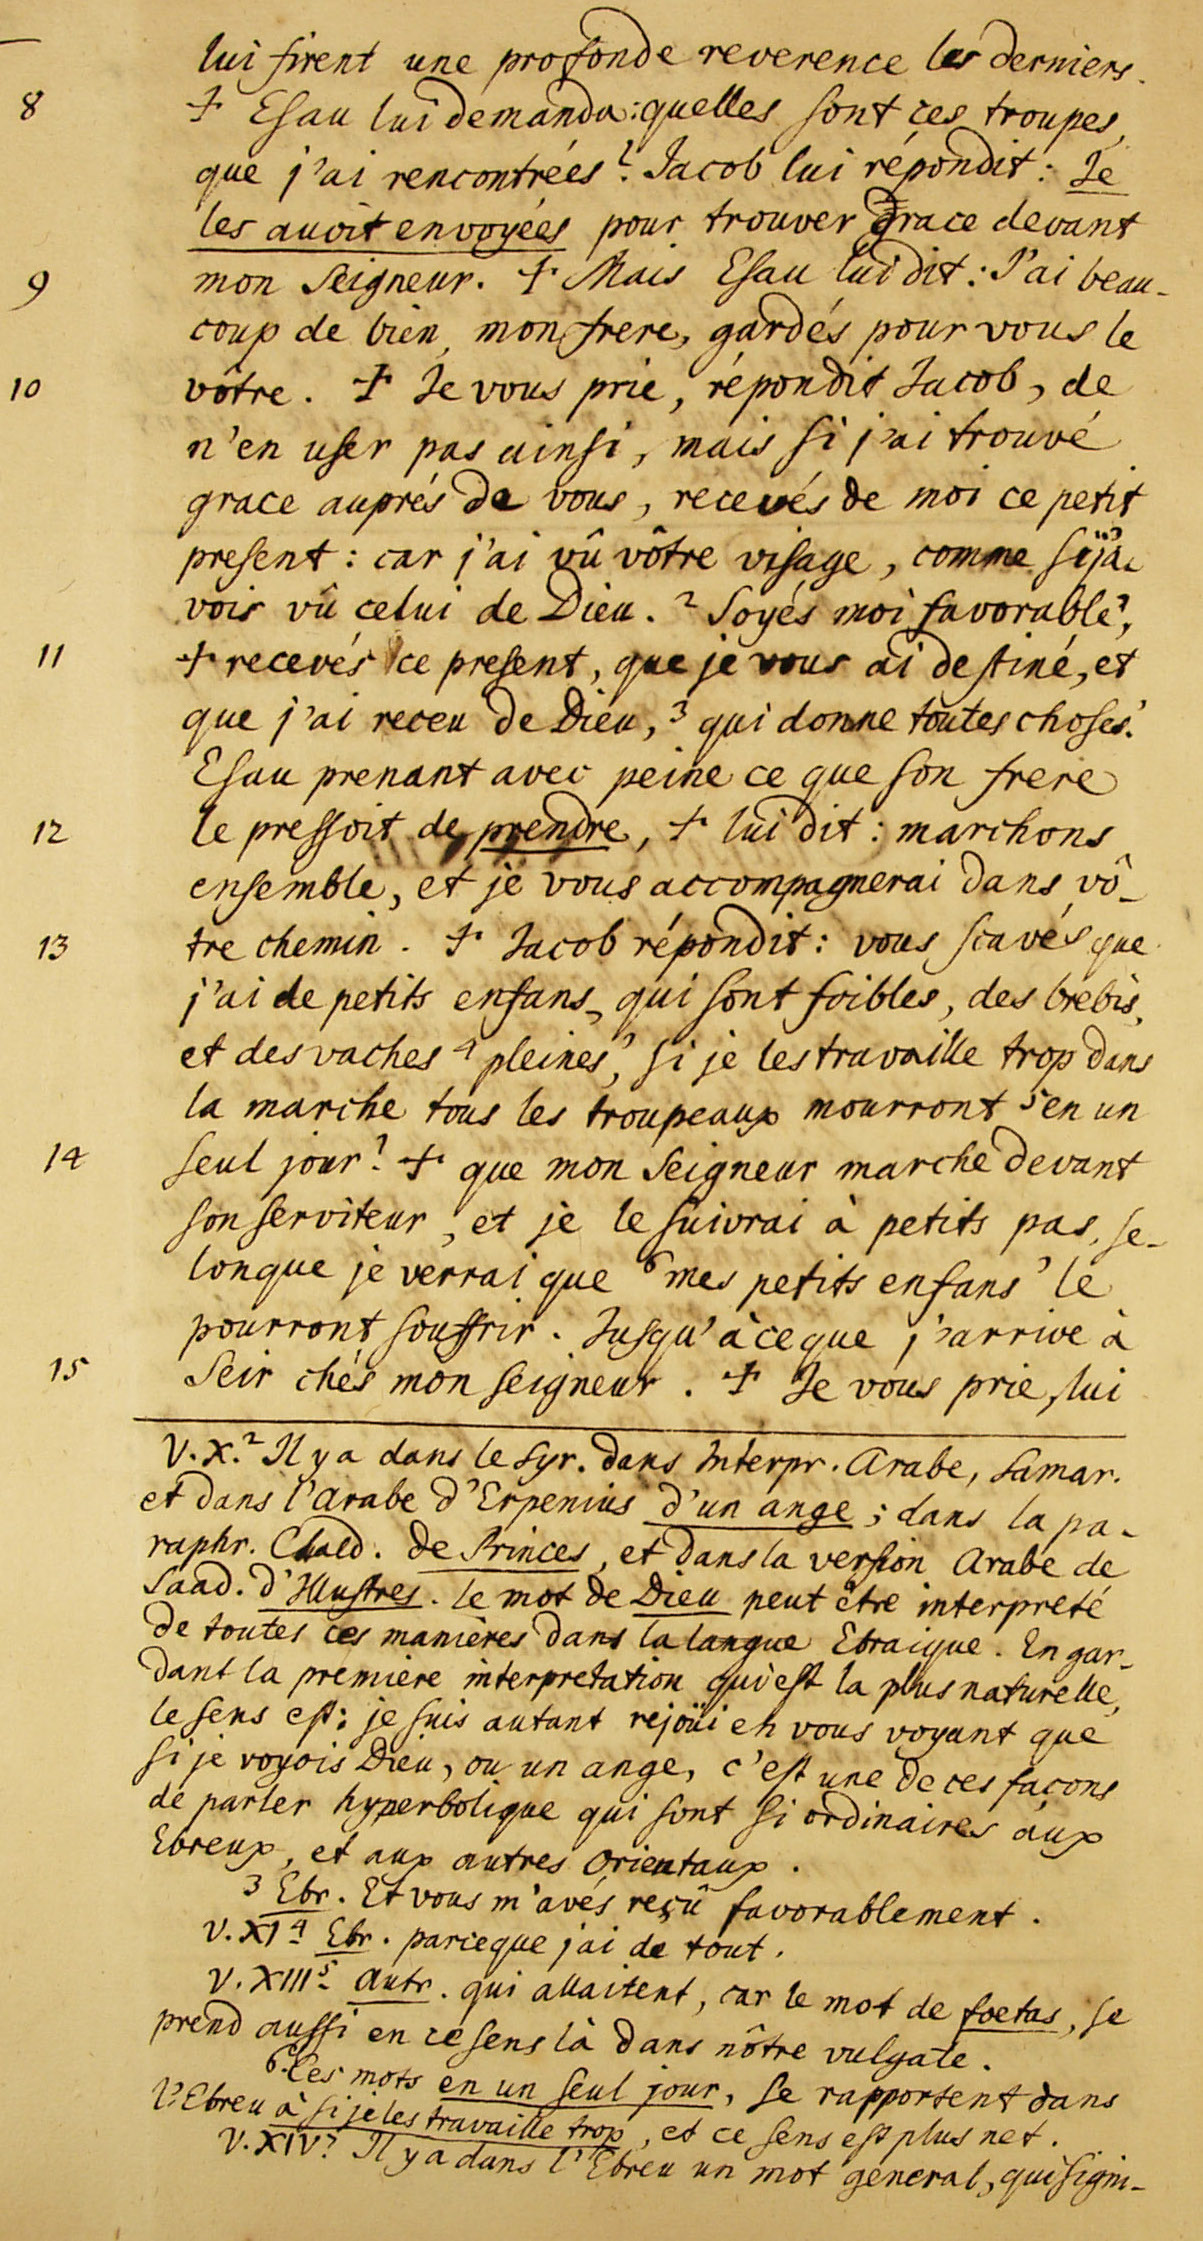 lui firent une profonde reverence les derniers.
8 + Esau lui demanda: quelles sont ces troupes,
que j'ai rencontrées? Jacob lui répondit: Je
les avoit envoyées pour trouver grace devant
9 mon Seigneur. + Mais Esau lui dit: J'ai beau-
coup de bien, mon frere, gardés pour vous le
10 vôtre. + Je vous prie, répondit Jacob, de
n'en user pas ainsi, mais si j'ai trouvé
grace auprés de vous, recevés de moi ce petit
present: car j'ai vû vôtre visage, comme si j'a-
vois vû celui de Dieu. 2 Soyés moi favorable,
11 + recevés ce present, que je vous ai destiné, et
que j'ai receu de Dieu, 3 qui donne toutes choses.
Esau prenant avec peine ce que son frere
12 le pressoit de prendre, + lui dit: marchons
ensemble, et je vous accompagnerai dans vô-
13 tre chemin. + Jacob répondit: vous scavés que
j'ai de petits enfans, qui sont foibles, des brebis,
et des vaches 4 pleines, si je les travaille trop dans
la marche tous les troupeaux mourront 5 en un
14 seul jour? + que mon Seigneur marche devant
son serviteur, et je le suivrai à petits pas, se-
lonque je verrai que 6 mes petits enfans le
pourront souffrir. Jusqu'à ceque j'arrive à
15 Seir chés mon seigneur. + Je vous prie, lui
V. X. 2 Il y a dans le Syr. dans Interpr. Arabe, Samar.
et dans l'Arabe d'Erpenius d'un ange; dans la pa-
raphr. Chald. de Princes, et dans la version Arabe de
Saad. d'Illustres. le mot de Dieu peut être interpreté
de toutes ces manières dans la langue Ebraique. En gar-
dant la premiere interpretation qui est la plus naturelle,
le sens est: je suis autant rejoüi en vous voyant que
si je voyois Dieu, ou un ange, c'est une de ces façons
de parler hyperbolique qui sont si ordinaires aux
Ebreux, et aux autres Orientaux.
3 Ebr. Et vous m'avés reçû favorablement.
V. XI 4 Ebr. parceque j'ai de tout.
V. XIII 5 Autr. qui allaitent, car le mot de foetas, se
prend aussi en ce sens là dans nôtre vulgate.
6 Ces mots en un seul jour, se rapportent dans
l'Ebreu à si je les travaille trop, et ce sens est plus net.
V. XIV 7 Il y a dans l'Ebreu un mot general, qui signi-